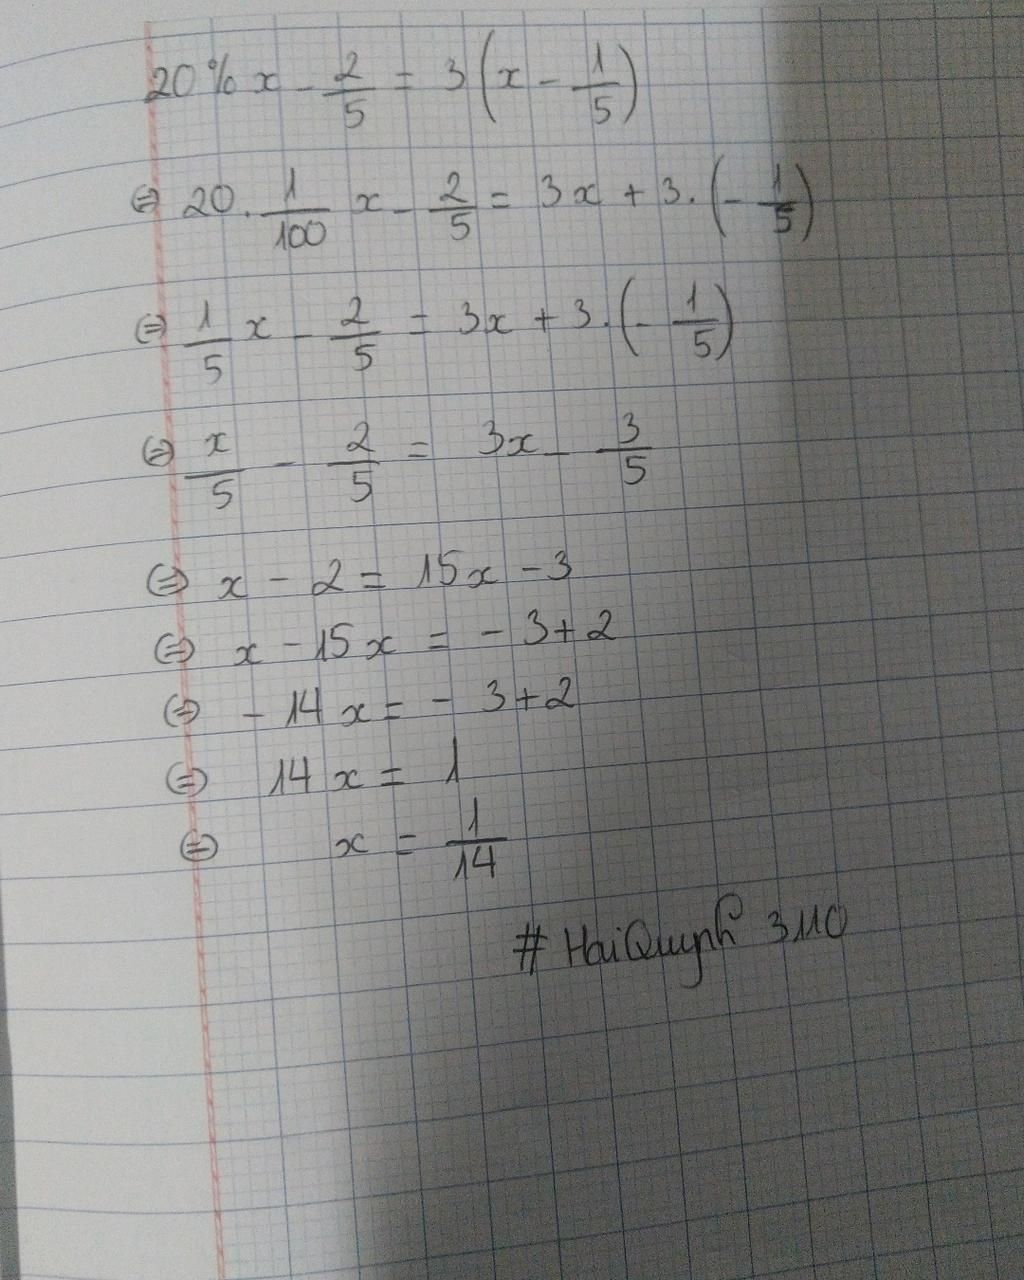 20% x - 2/5 = 3(x - 1/5)
⇔ 20. 1/100 x - 2/5 = 3x + 3. (- 1/5)
⇔ 1/5 x - 2/5 = 3x + 3. (- 1/5)
⇔ x/5 - 2/5 = 3x - 3/5
⇔ x - 2 = 15x - 3
⇔ x - 15x = - 3 + 2
⇔ - 14x = - 3 + 2
⇔ 14x = 1
⇔ x = 1/14
# HaiQuynh 3110